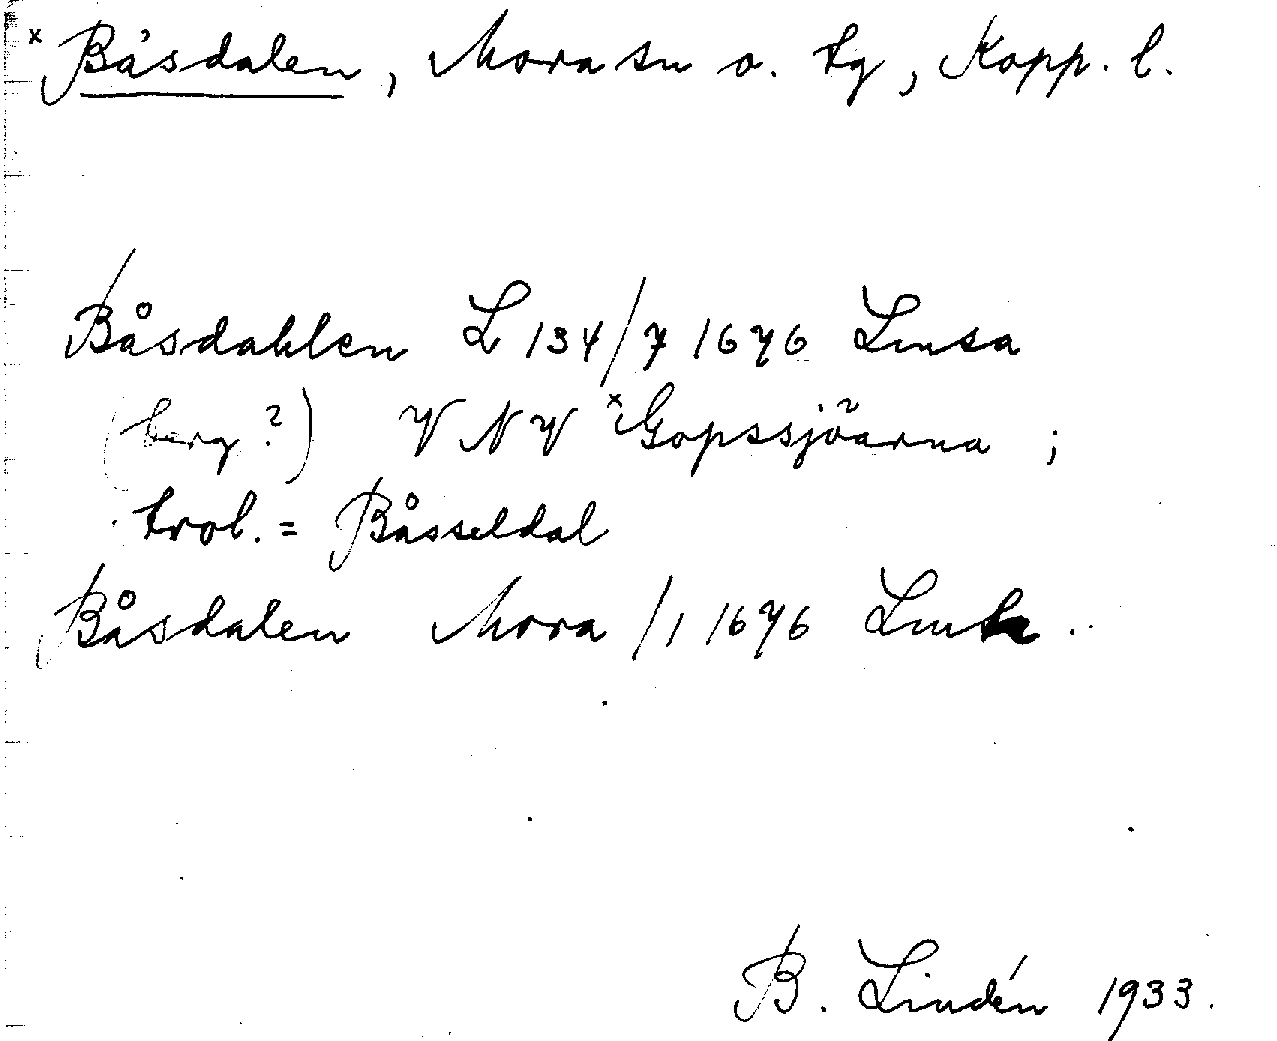 x Båsdalen, Mora sn o. tg, Kopp. l.
Båsdahlen L 134/7 1676 Lmsa
(berg?) VNV xGopssjöarna ;
trol. = Båsseldal
Båsdalen Mora /1 1676 Lmsa ..
B. Lindén 1933.